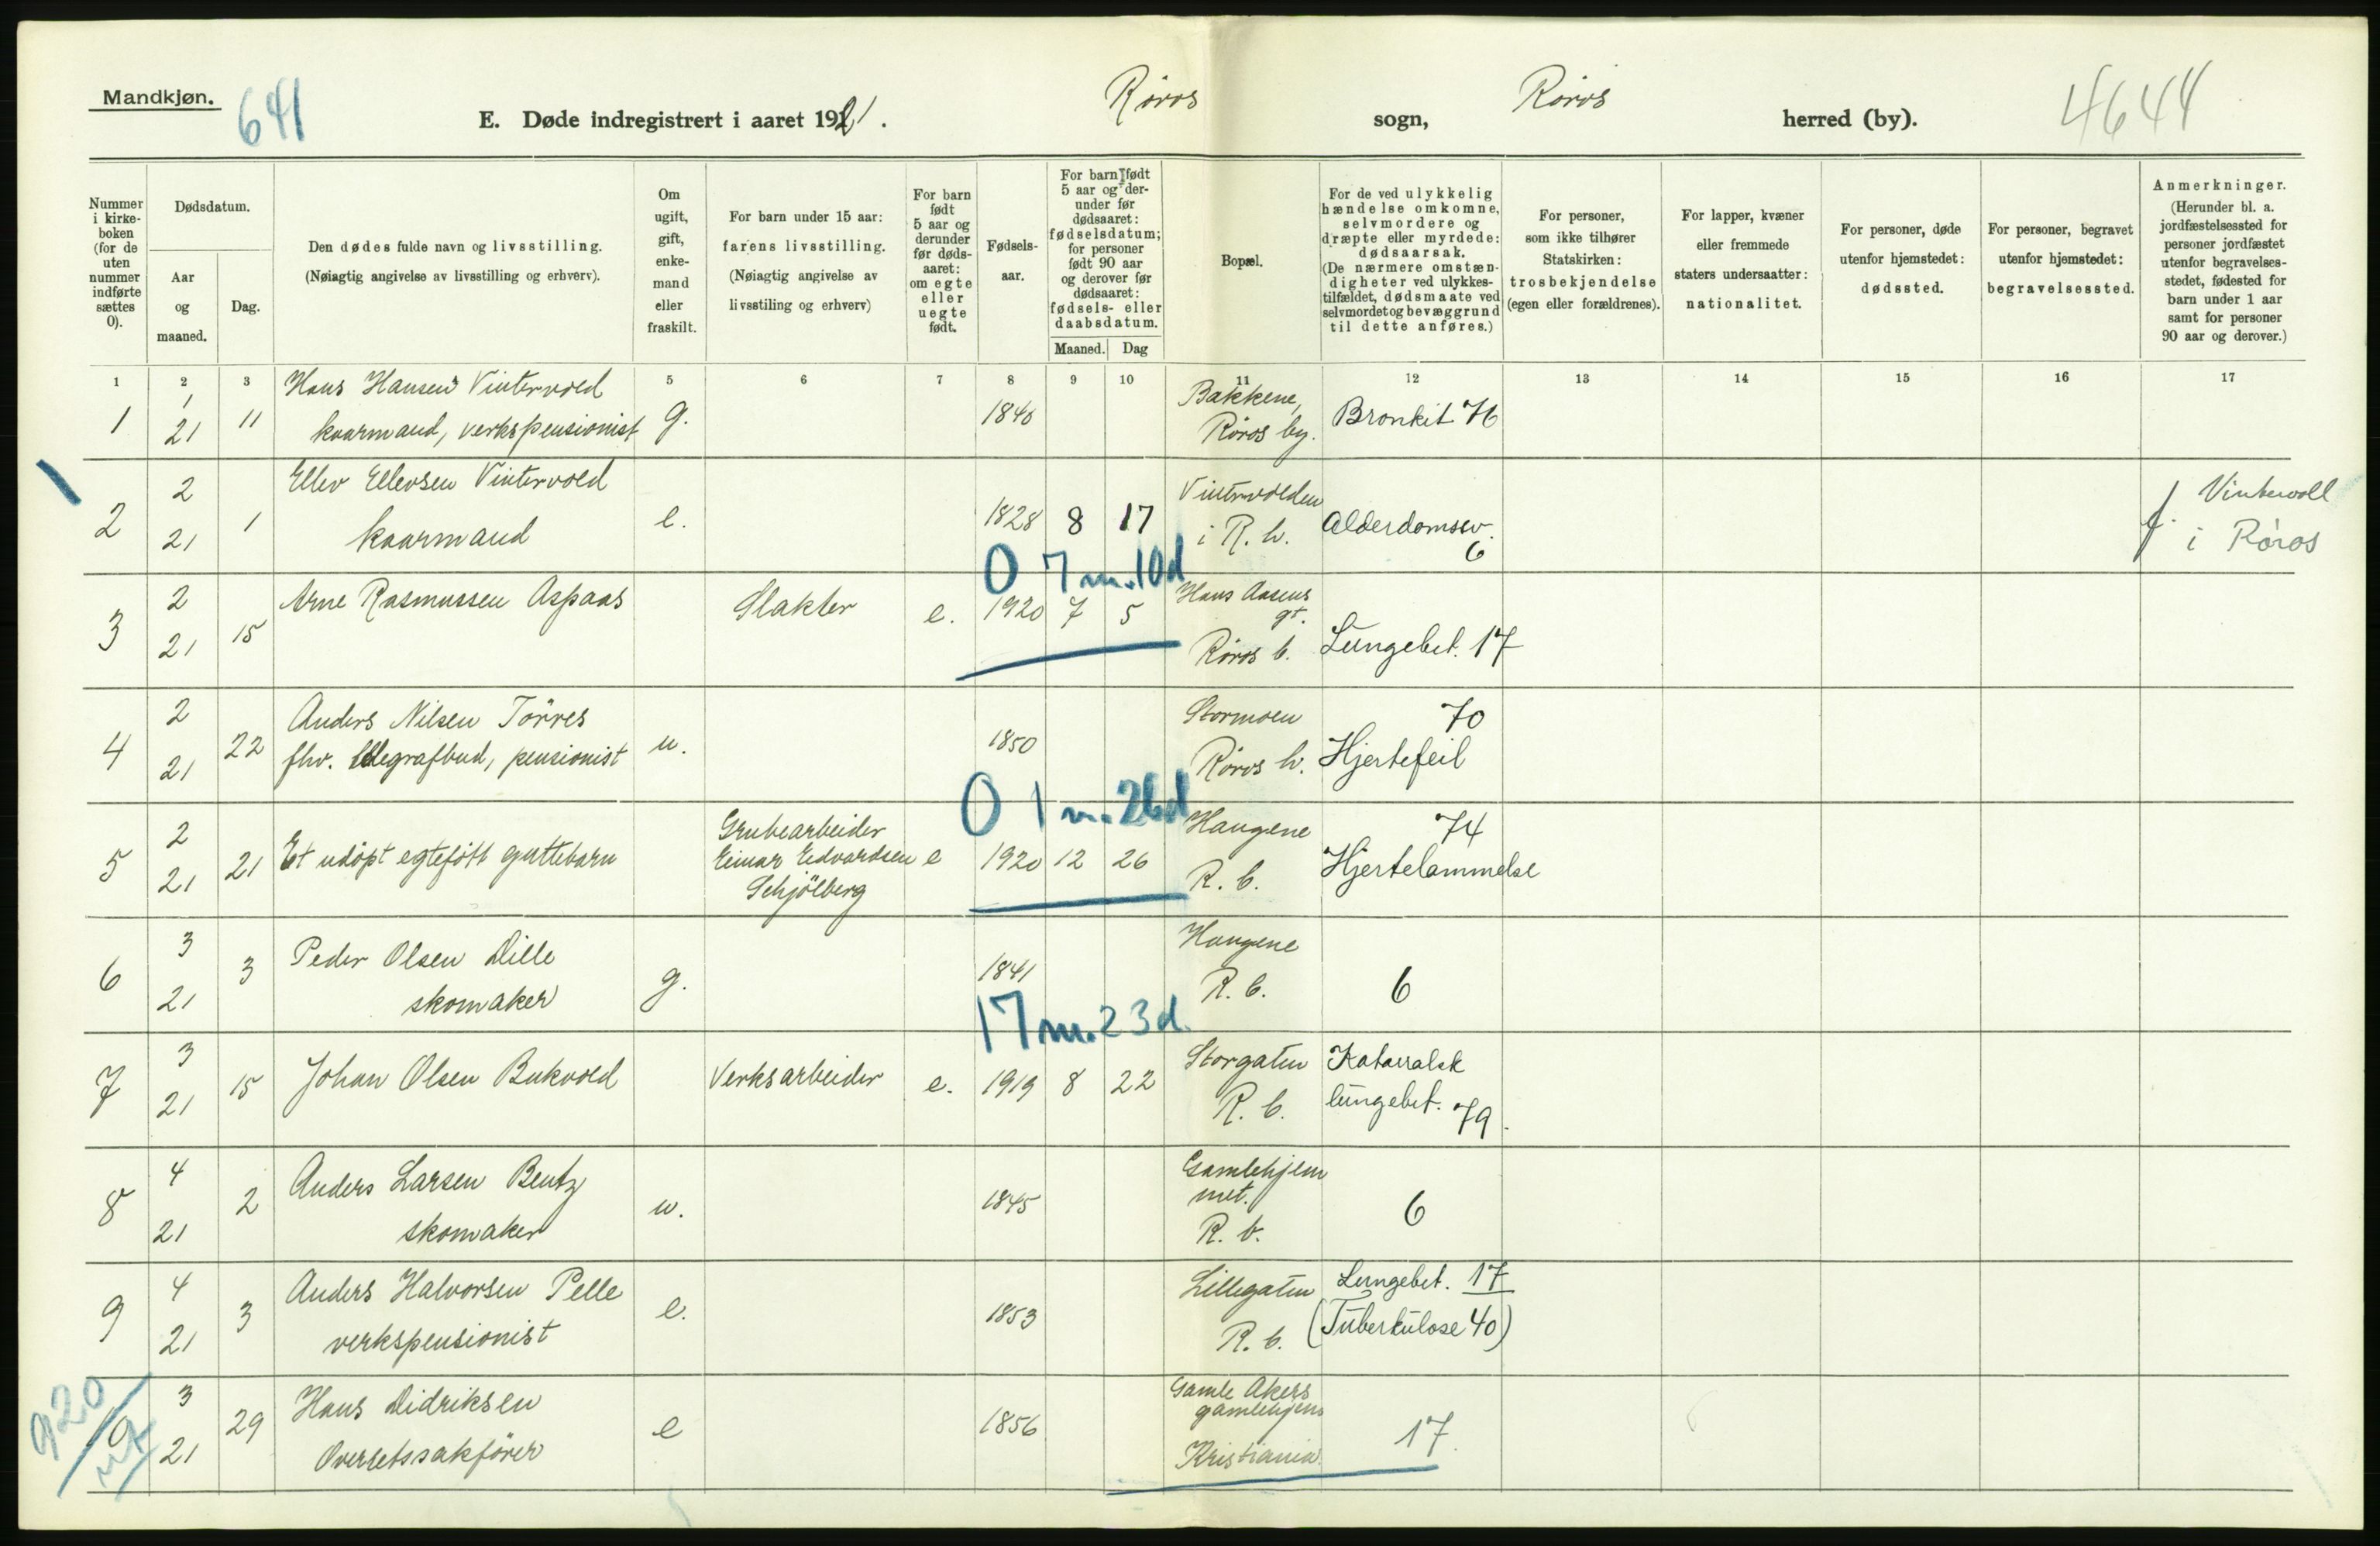 Mandkjøn.
641
E. Døde indregistrert i aaret 1921.
Røros sogn, Røros herred (by).
4644
Nummer i kirke-boken (for de uten nummer indførte sættes 0).
Dødsdatum.
Aar og maaned.
Dag.
Den dødes fulde navn og livsstilling.
(Nøiagtig angivelse av livsstilling og erhverv).
Om ugift, gift, enke-mand eller fraskilt.
For barn under 15 aar: farens livsstilling.
(Nøiagtig angivelse av livsstiling og erhverv)
For barn født 5 aar og derunder før døds-aaret: om egte eller uegte født.
Fødsels-aar.
For barn født 5 aar og der-under før dødsaaret: fødselsdatum; for personer født 90 aar og derover før dødsaaret: fødsels- eller daabsdatum.
Maaned. Dag
Bopæl.
For de ved ulykkelig hændelse omkomne, selvmordere og dræpte eller myrdede: dødsaarsak.
(De nærmere omstæn-digheter ved ulykkes-tilfældet, dødsmaate ved selvmordet og bevæggrund til dette anføres.)
For personer, som ikke tilhører Statskirken: trosbekjendelse (egen eller forældrenes).
For lapper, kvæner eller fremmede staters undersaatter: nationalitet.
For personer, døde utenfor hjemstedet: dødssted.
For personer, begravet utenfor hjemstedet: begravelsessted.
Anmerkninger.
(Herunder bl. a. jordfæstelsessted for personer jordfæstet utenfor begravelses-stedet, fødested for barn under 1 aar samt for personer 90 aar og derover.)
1 2 3 5 6 7 8 9 10 11 12 13 14 15 16 17
1 1 21 11 Hans Hansen Vintervold
kaarmand, verkspensionist g. 1840 Bakkene, Røros by. Bronkit 76
2 2 21 1 Ellev Ellevsen Vintervold
kaarmand e. 1828 8 17 Vintervolden i R. h. Alderdomssv. 6 f. Vintervoll i Røros
0 7 m. 10 d
3 2 21 15 Arne Rasmussen Aspaas Slakter e. 1920 7 5 Hans Aasens gt. Røros b. Lungebet. 17
4 2 21 22 Anders Nilsen Törres
fhv. telegrafbud, pensionist u. 1850 Stormoen Røros h. 70 Hjertefeil
0 1 m. 26 d
5 2 21 21 Et udöpt egtefött guttebarn Grubearbeider Einar Edvardsen Schjölberg e 1920 12 26 Haugene R. b. 74 Hjertelammelse
6 3 21 3 Peder Olsen Dille
skomaker g. 1841 Haugene R. b. 6
1 7 m. 23 d.
7 3 21 15 Johan Olsen Bukvold Verksarbeider e. 1919 8 22 Storgaten R. b. Katarralsk lungebet. 79.
8 4 21 2 Anders Larsen Bentz
skomaker u. 1845 Gamlehjemmet. R. b. 6
9 4 21 3 Anders Halvorsen Pelle
verkspensionist e. 1853 Lillegaten R. b. Lungebet. 17
(Tuberkulose 40)
920
3 21 29 Hans Didriksen
Overretssakförer e 1856 Gamle Akers gamlehjem Kristiania. 17.